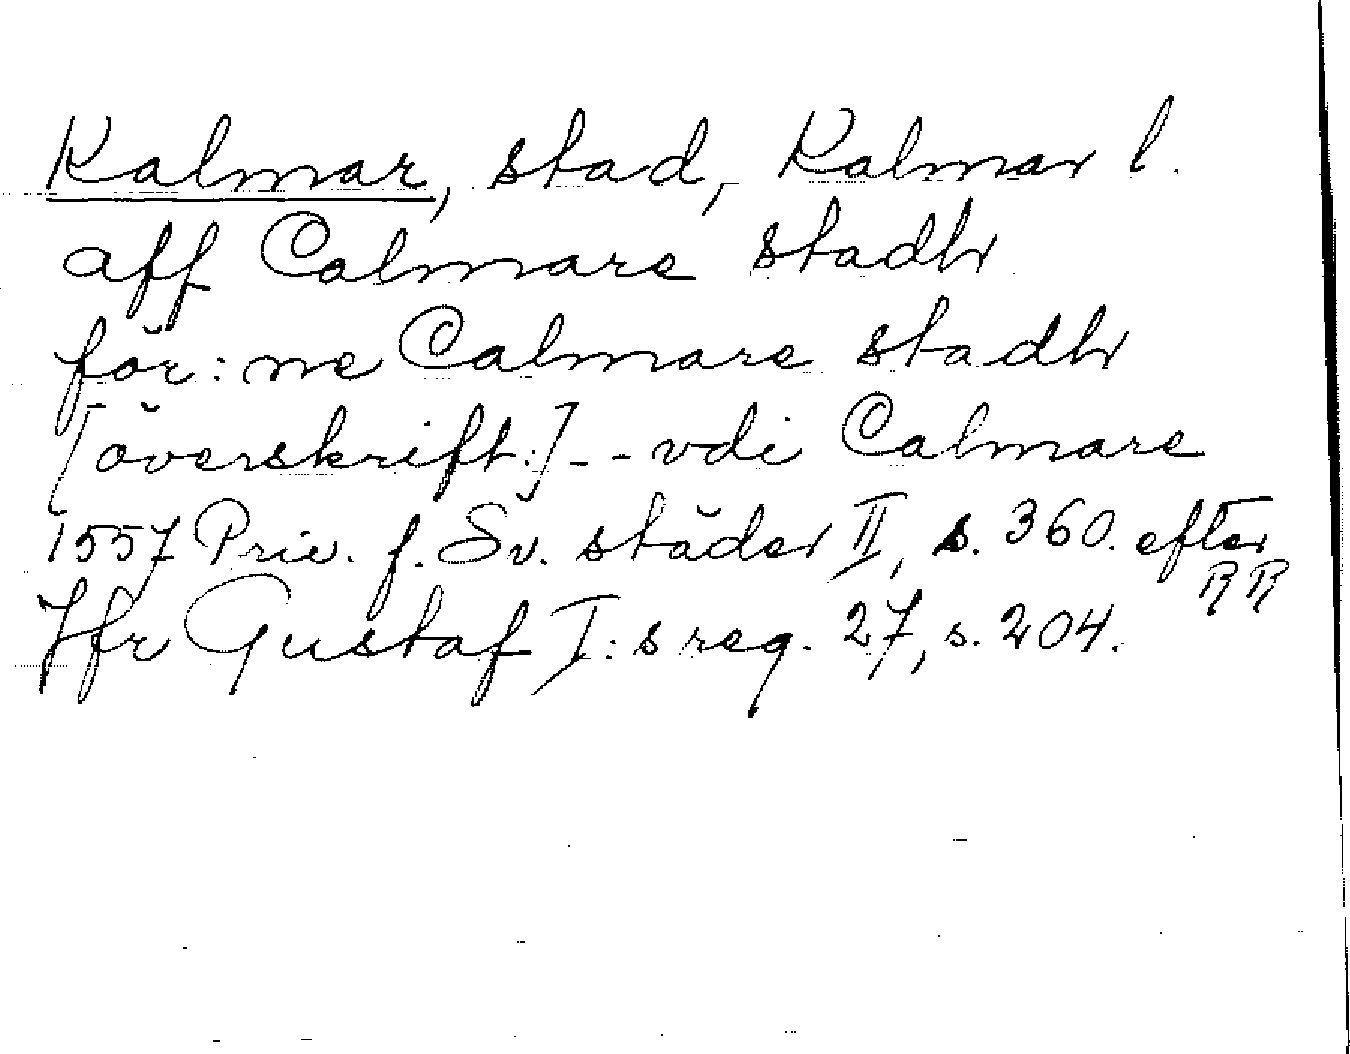 Kalmar, stad, Kalmar l.
aff Calmare stadh
för:ne Calmare stadh
[överskrift:] - - vdi Calmare
1557 Priv. f. Sv. städer II, s. 360. efter RR
Jfr Gustaf I:s reg. 27, s. 204.